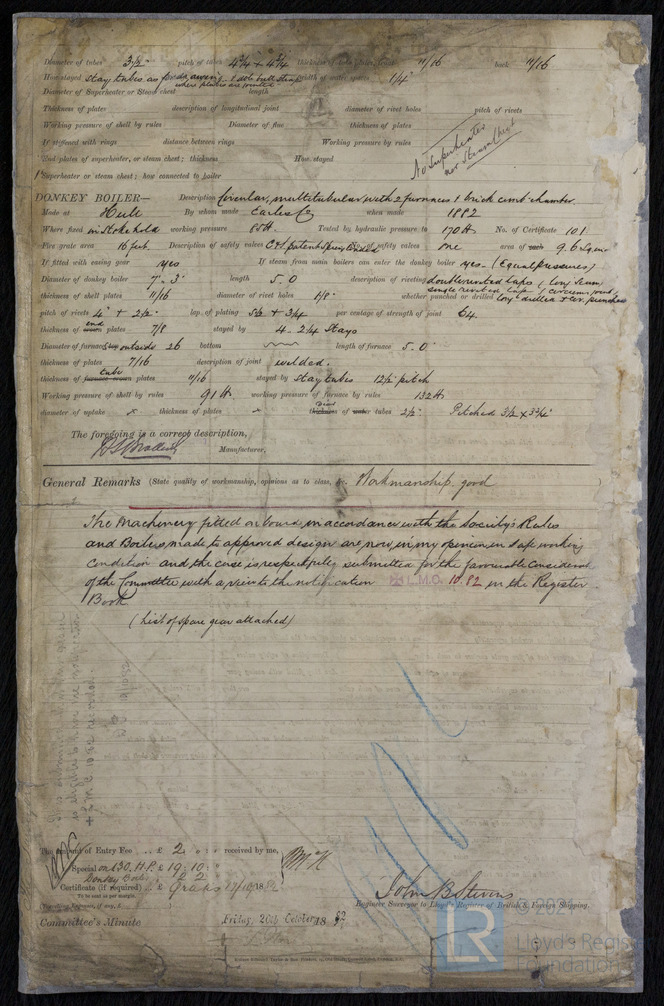 Diameter of tubes 3½" pitch of tubes 4¾ + 4¾ thickness of tube plates, front 11/16 back 11/16
How stayed stay tubes as for drawing width of water spaces 1¼"
where plates are jointed
Diameter of Superheater or Steam chest length
Thickness of plates description of longitudinal joint diameter of rivet holes pitch of rivets
Working pressure of shell by rules Diameter of flue thickness of plates
If stiffened with rings distance between rings Working pressure by rules
End plates of superheater, or steam chest; thickness How stayed
Superheater or steam chest; how connected to boiler
No Superheater nor Steam chest
DONKEY BOILER— Description Circular, multitubular with 2 furnaces 1 brick comb chamber.
Made at Hull By whom made Earles Co when made 1882
Where fixed in Stokehold working pressure 85 lb. Tested by hydraulic pressure to 170 lb No. of Certificate 101
Fire grate area 16 feet. Description of safety valves No. of safety valves one area of each 9.6 Sq in
If fitted with easing gear yes If steam from main boilers can enter the donkey boiler yes. (Equal pressures)
Diameter of donkey boiler 7'- 3" length 5. 0 description of riveting double riveted laps (long seam,
single riveted lap (circum, punched
thickness of shell plates 11/16 diameter of rivet holes 1/8" whether punched or drilled long drilled + cir. punched
pitch of rivets 4" + 2½" lap of plating 5½ + 3¾ per centage of strength of joint 64.
thickness of end plates 7/8 stayed by 4. 2¼ Stays
Diameter of furnace, outside 26 bottom length of furnace 5. 0"
thickness of plates 7/16 description of joint welded.
thickness of tube plates 11/16 stayed by stay tubes 12½" pitch
Working pressure of shell by rules 91 lb. working pressure of furnace by rules 132 lb
diameter of uptake × thickness of plates × tubes 2½" Pitched 3½ × 3¾"
The foregoing is a correct description,
Manufacturer.
General Remarks (State quality of workmanship, opinions as to class, &c. Workmanship good
The Machinery fitted on board in accordance with the Society's Rules
and Boilers made to approved design are now in my opinion in safe working
condition and the case is respectfully submitted for the favourable Consideration
of the Committee with a view to the notification L.M.C. 10.82 in the Register
Book
(List of spare gear attached)
The amount of Entry Fee .. £ 2 " " received by me,
Special on 130. H.P. £ 19. 10.
Donkey Boiler 2 2
Certificate (if required) .. £ Gratis 17/10/1882
To be sent as per margin.
(Travelling Expenses, if any, £
John B Stevens
Engineer Surveyor to Lloyd's Register of British & Foreign Shipping.
Committee's Minute Friday, 20th October 1882
LR
© 2021
Lloyd's Register
Foundation